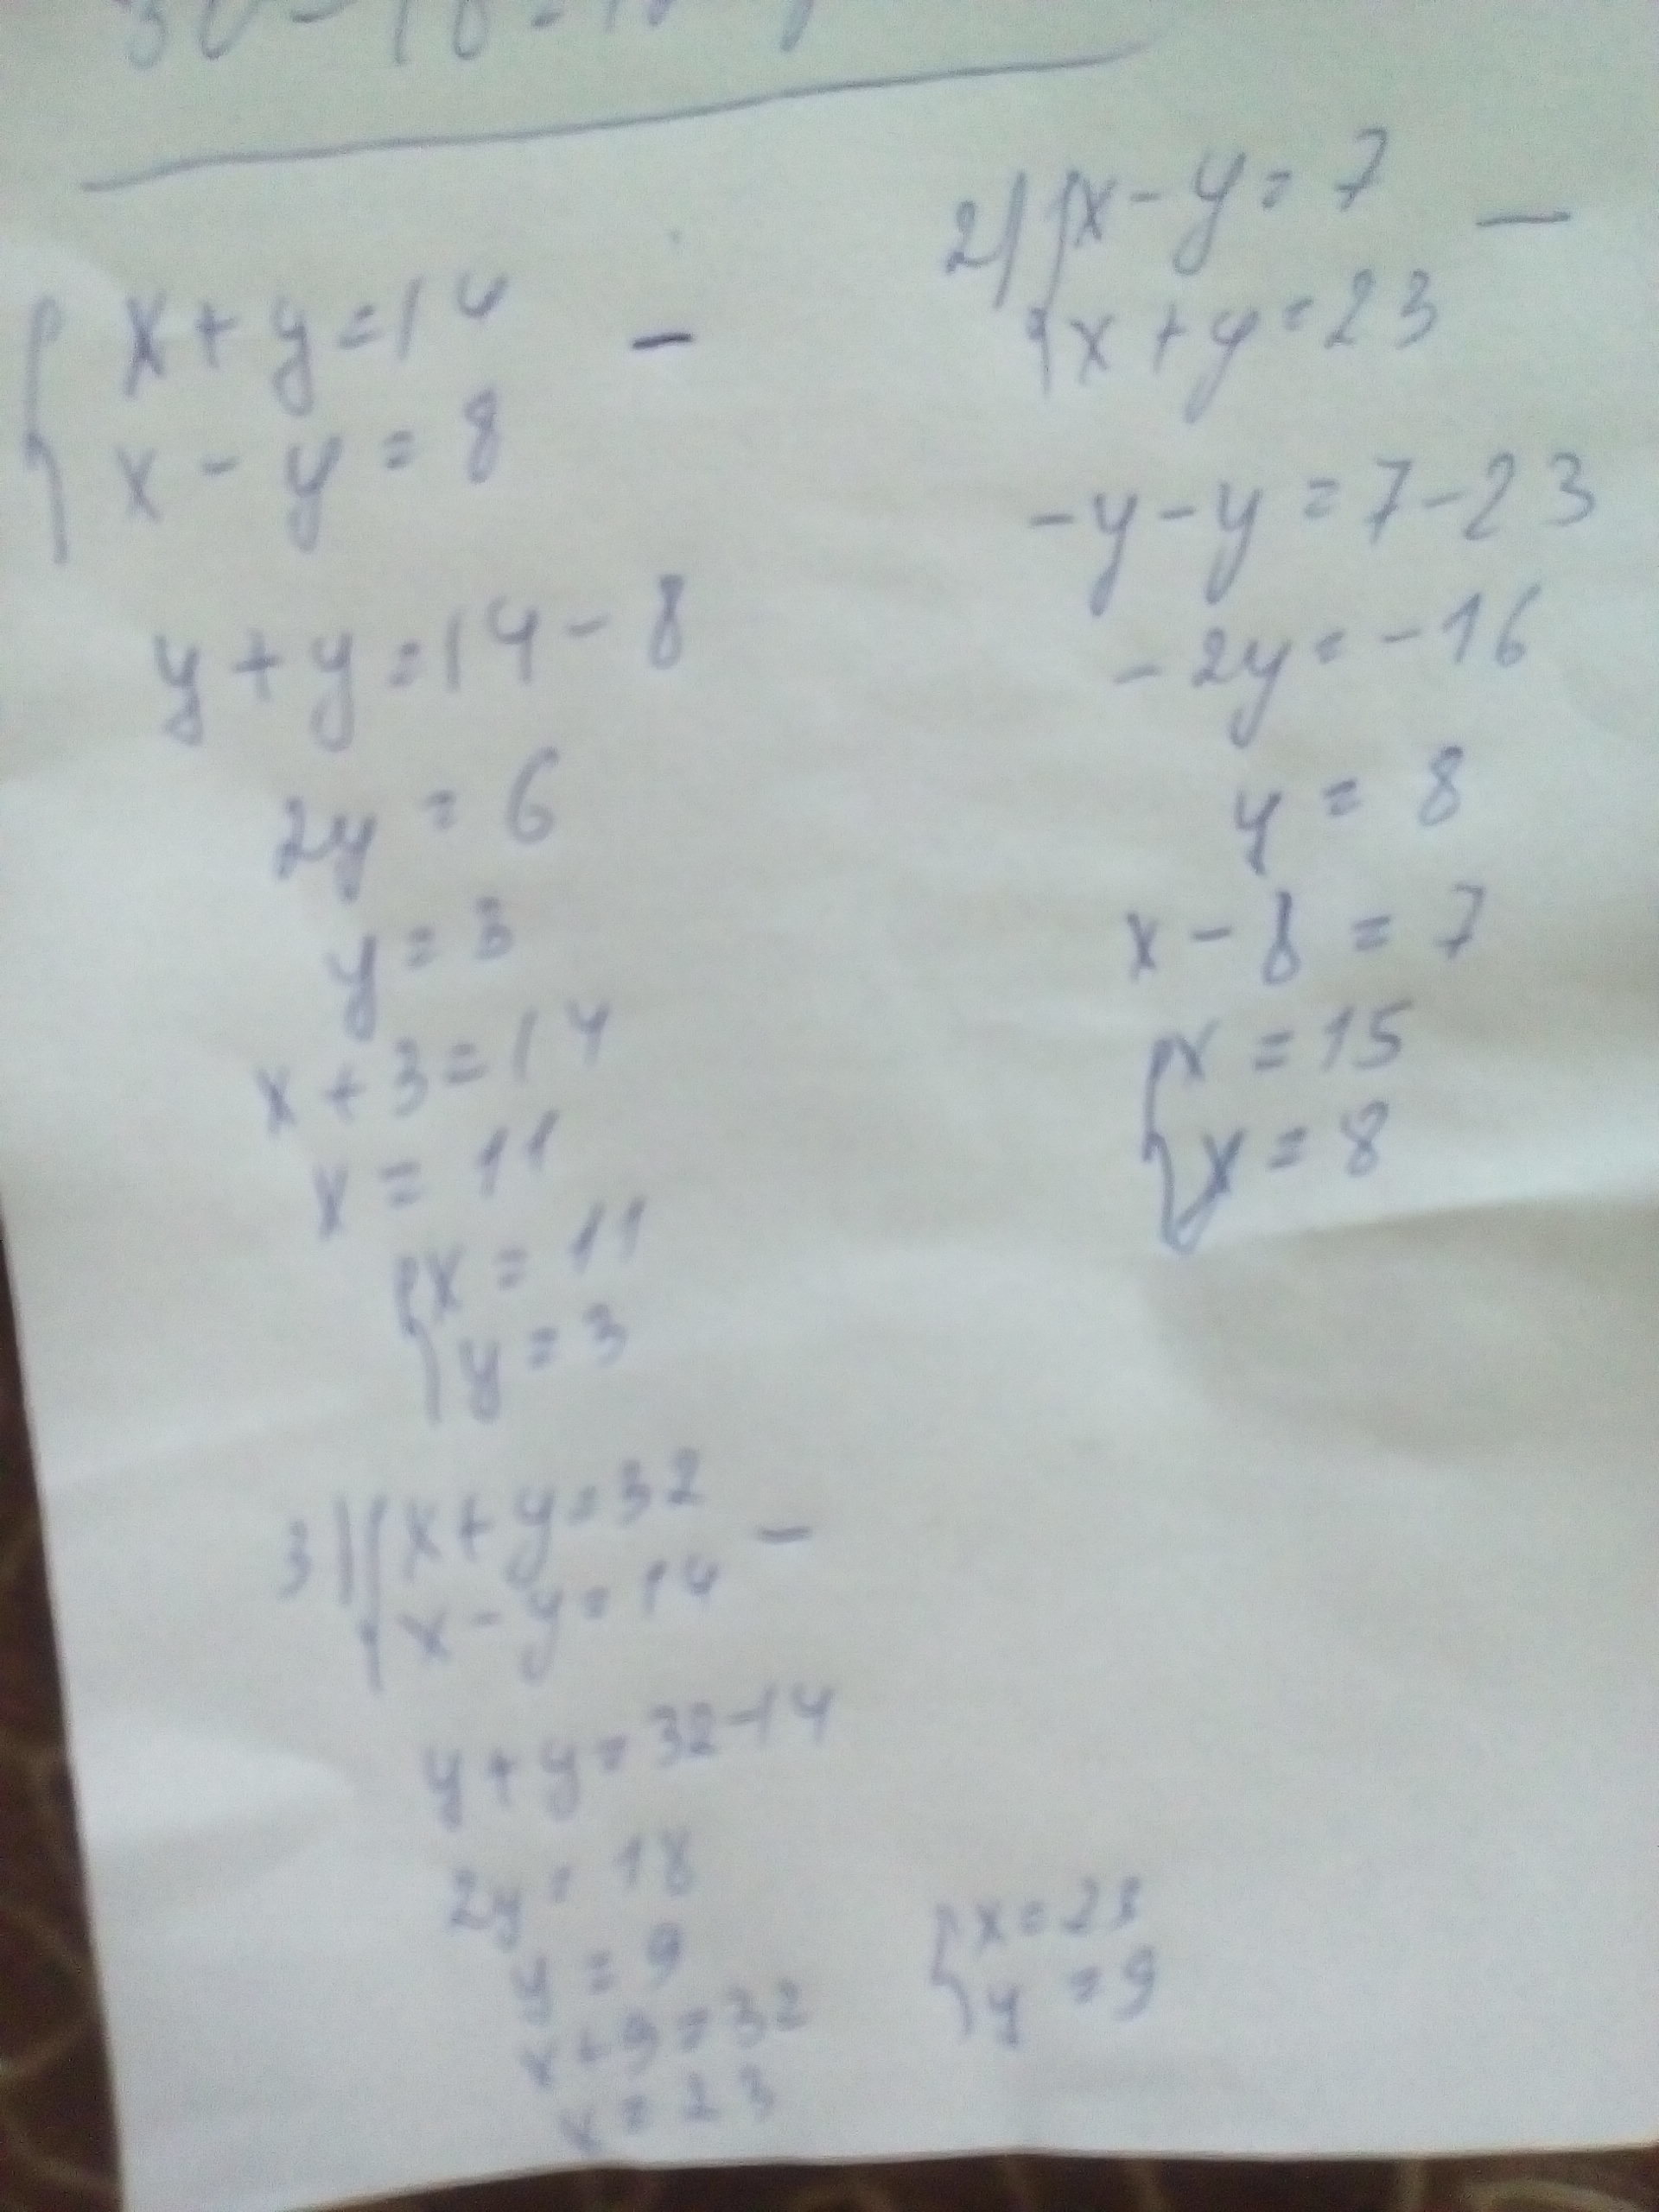 { x + y = 14 -
x - y = 8
y + y = 14 - 8
2y = 6
y = 3
x + 3 = 14
x = 11
{ x = 11
y = 3
2) { x - y = 7 -
x + y = 23
-y - y = 7 - 23
-2y = -16
y = 8
x - 8 = 7
{ x = 15
y = 8
3) { x + y = 32 -
x - y = 14
y + y = 32 - 14
2y = 18
y = 9
x + 9 = 32
x = 23
{ x = 23
y = 9